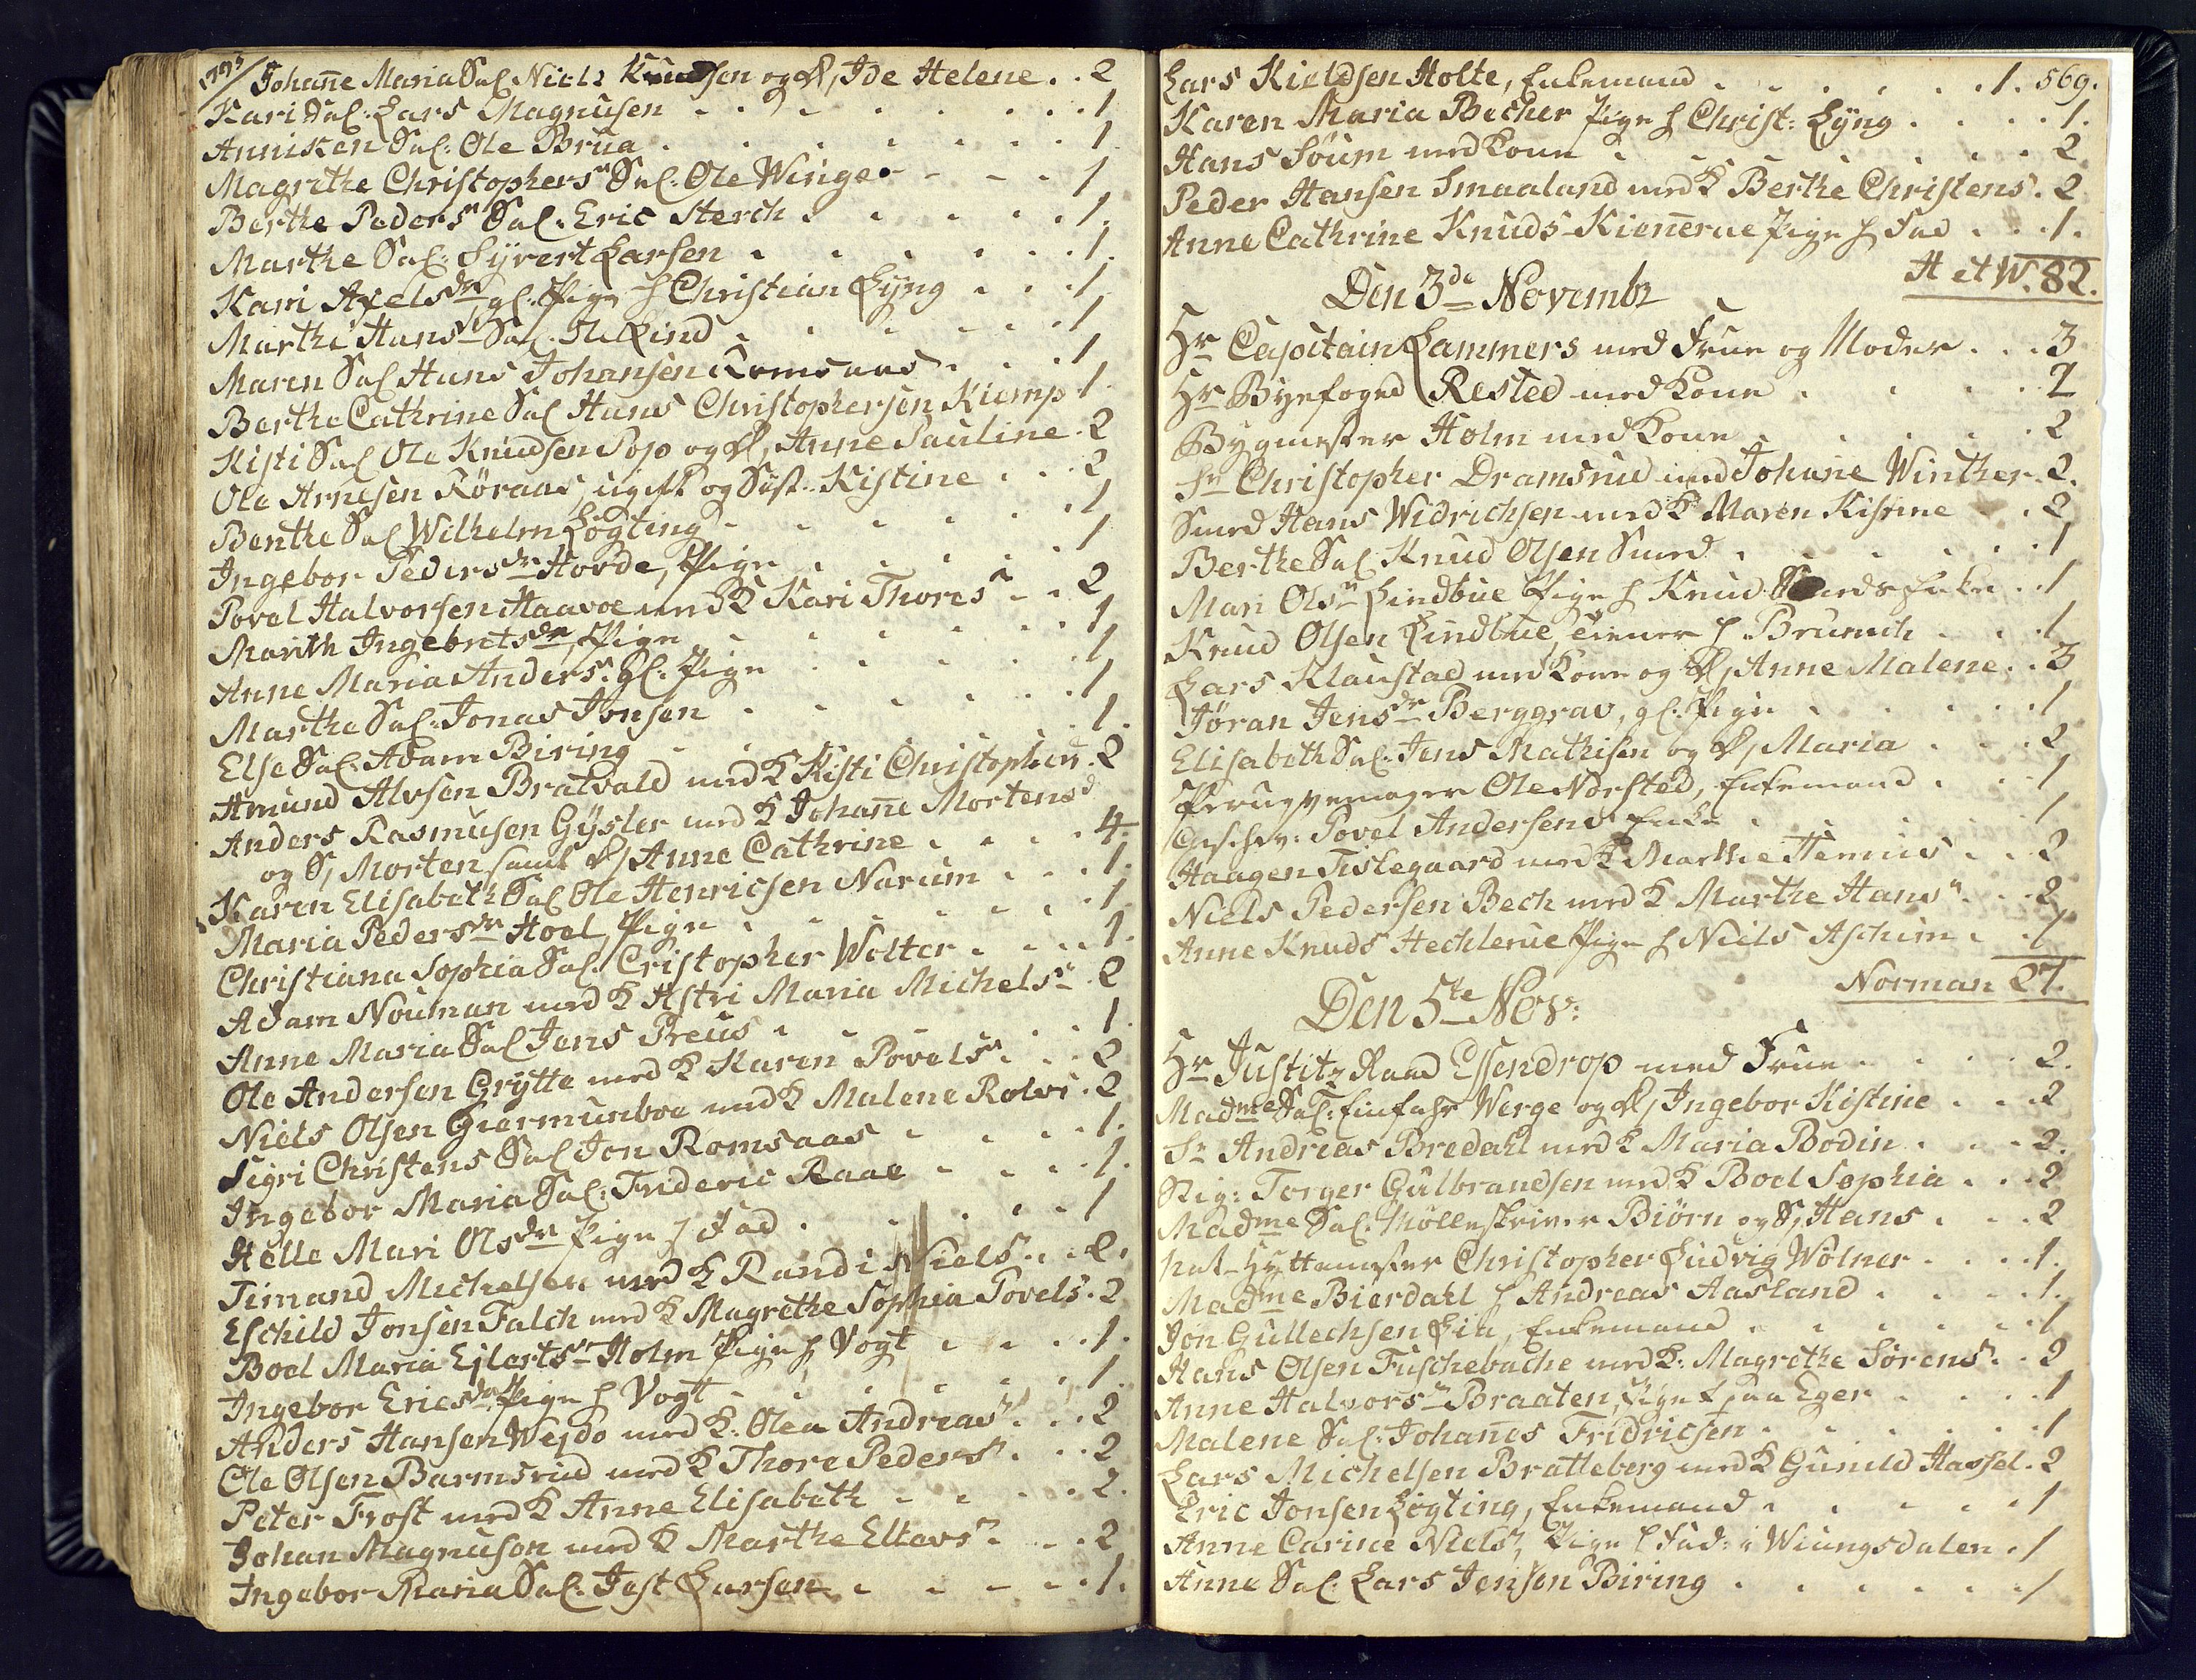 1793
Johanne Maria Sal. Niels Knudsen og D, Ide Helene . . 2
Kari Sal: Lars Magnusen . . 1
Annisken Sal: Ole Brua . . 1
Magrethe Christophers Sal: Ole Winge . . 1
Berthe Peders Sal. Eric Sterch . . 1
Marthe Sal: Syvert Larsen . . 1
Kari Axelsdr gl: Pige h Christian Lyng . . 1
Marthe Hans Sal. Lind . . 1
Maren Sal Hans Johansen Romsaas . . 1
Berthe Cathrine Sal Hans Christophersen Kiemp 1
Kisti Sal Ole Knudsen Sop og D, Anne Pauline . 2
Ole Arnesen Röraas, ugift og Søst. Kistine . . 2
Benthe Sal Wilhelm Løgting . . 1
Ingebor Pedersdr Hovde, Pige . . 1
Povel Halvorsen Haavoe med K Kari Thores . . 2
Marith Ingebretsdr, Pige . . 1
Anne Maria Anders. gl: Pige . . 1
Marthe Sal: Jonas Jonsen . . 1
Else Sal: Adam Biring . . 1.
Amund Alvsen Bratvald med K Kisti Christophers . 2
Anders Rasmusen Gysler med K Johanne Mortensd
og S, Morten samt D, Anne Cathrine . . 4.
Karen Elisabeth Sal Ole Henricsen Narum . . 1.
Maria Pedersdr Hoel, Pige . . 1
Christiana Sophia Sal. Cristopher Wolter . . 1.
Adam Nouman med K Astri Maria Michels . 2
Anne Maria Sal Jens Preus . . 1.
Ole Andersen Grytte med K Karen Povels . . 2
Niels Olsen Giermunboe med K Malene Rolvs . 2
Sigri Christens Sal Jon Romsaas . . 1.
Ingebor Maria Sal: Frideric Raae . . 1.
Helle Mari Olsdr Pige h Fad . . 1
Timand Michelsen med K Randi Niels . . 2.
Eschild Jonsen Falch med K Magrethe Sophia Povels . 2
Boel Maria Ejlerts Holm Pige h Vogt . . 1.
Ingebor Ericsdr Pige h Vogt . . 1.
Anders Hansen Wejdo med K: Olea Andreas . . 2
Ole Olsen Barmsrud med K Thore Peders . . 2
Peter Frost med K Anne Elisabeth . . 2.
Johan Magnuson med K Marthe Ellevs . . 2
Ingebor Maria Sal: Jost Larsen . . 1.
Lars Kieldsen Holte, Enkemand . . 1. 569.
Karen Maria Becher Pige h Christ: Lyng . . 1.
Hans Søum med Kone . . 2
Peder Hansen Smaaland med K Berthe Christens . 2
Anne Cathrine Knuds Kiennerue Pige h Fad . . 1.
H et W. 82.
Den 3de Novembr
Hr Capitain Lammers med Frue og Moder . . 3
Hr Byefoged Rested med Kone . . 2
Bygmester Holm med Kone . . 2
Sr Christopher Dramsrud med Johane Winther . 2.
Smed Hans Widrichsen med K Maren Kistine . . 2
Berthe Sal. Knud Olsen Smed . . 1
Mari Ols Lindbue Pige h Knud Smeds Enke . . 1
Knud Olsen Lindbue, tiener h. Brunich . . 1
Lars Klaustad med Kone og D, Anne Malene . . 3
Jøran Jensdr Berggrav, gl: Pige . . 1
Elisabeth Sal: Jens Mathisen og D, Maria . . 2
Perugvemager Ole Norsted, Enkemand . . 1
Povel Andersens Enke . . 1
Haagen Tislegaard med K Marthe Hennis . . 2
Niels Pedersen Bech med K Marthe Hans . . 2
Anne Knuds Hechlerue Pige h Niels Aschim . . 1
Norman 27.
Den 5te Nov:
Hr Justitz Raad Essendrop med Frue . . 2.
Madme Sal: Einfahr Werge og D, Ingebor Kistine . . 2
Sr Andreas Bredahl med K Maria Bodin . . 2.
Stig: Torger Gulbrandsen med K Boel Sophia . . 2
Madme Sal. Møllerskriver Biørn og S, Hans . . 2
Hyttemester Christopher Ludvig Wølner . . 1.
Madme Bierdahl h Andreas Aasland . . 1.
Jon Gullechsen Lia, Enkemand . . 1
Hans Olsen Fuschebache med K: Magrethe Sørens . . 2
Anne Halvors Braaten, Pige paa Eger . . 1
Malene Sal: Johanes Fridricsen . . 1
Lars Michelsen Bratteberg med K Gunild Hassel . 2
Eric Jonsen Løgting, Enkemand . . 1
Anne Carine Niels, Pige h Fad: i Wiungsdalen . 1
Anne Sal. Lars Jenson Biring . . 1